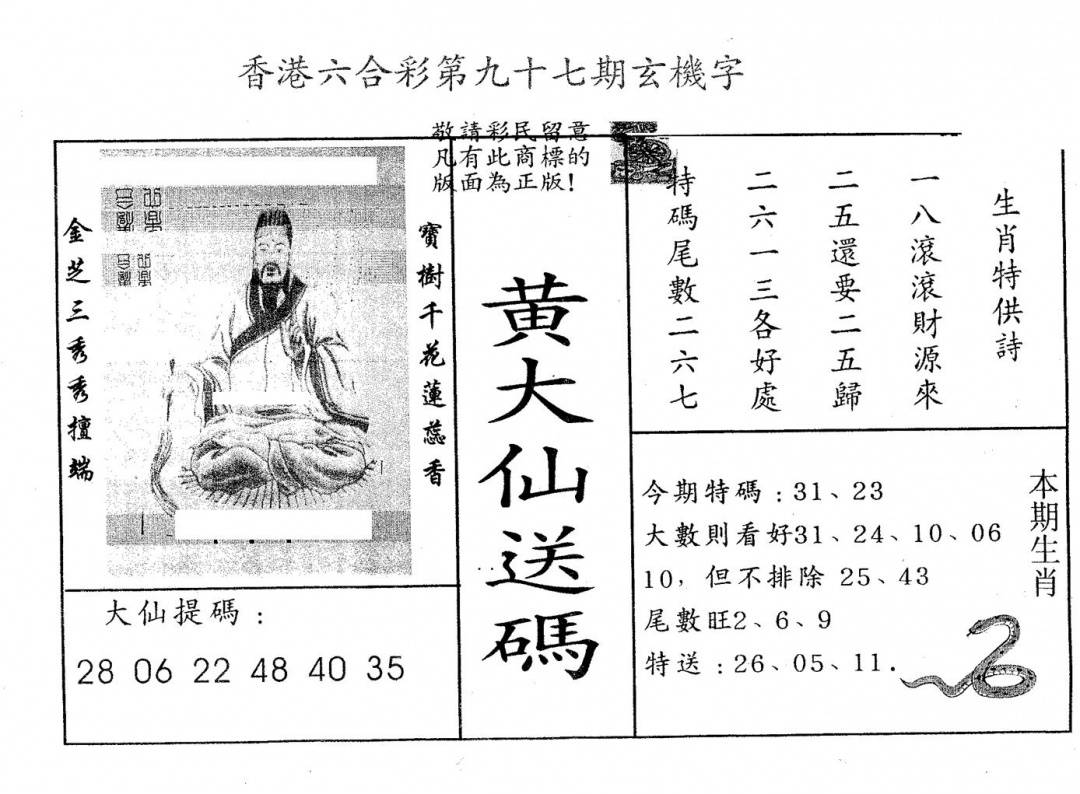 香港六合彩第九十七期玄機字
敬請彩民留意
凡有此商標的
版面為正版！
寶樹千花蓮蕊香
金芝三秀秀擅端
大仙提碼：
28 06 22 48 40 35
黄大仙送碼
生肖特供詩
一八滾滾財源來
二五還要二五歸
二六一三各好處
特碼尾數二六七
本期生肖
今期特碼：31、23
大數則看好31、24、10、06
10，但不排除 25、43
尾數旺2、6、9
特送：26、05、11.